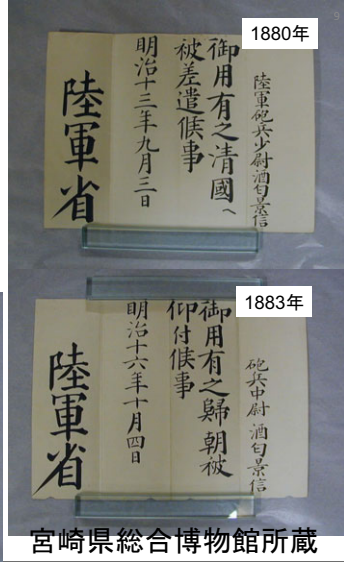 1880年
陸軍砲兵少尉酒匂景信
御用有之清國へ
被差遣候事
明治十三年九月三日
陸軍省
1883年
砲兵中尉 酒匂景信
御用有之歸朝被
仰付候事
明治十六年十月四日
陸軍省
宮崎県総合博物館所蔵